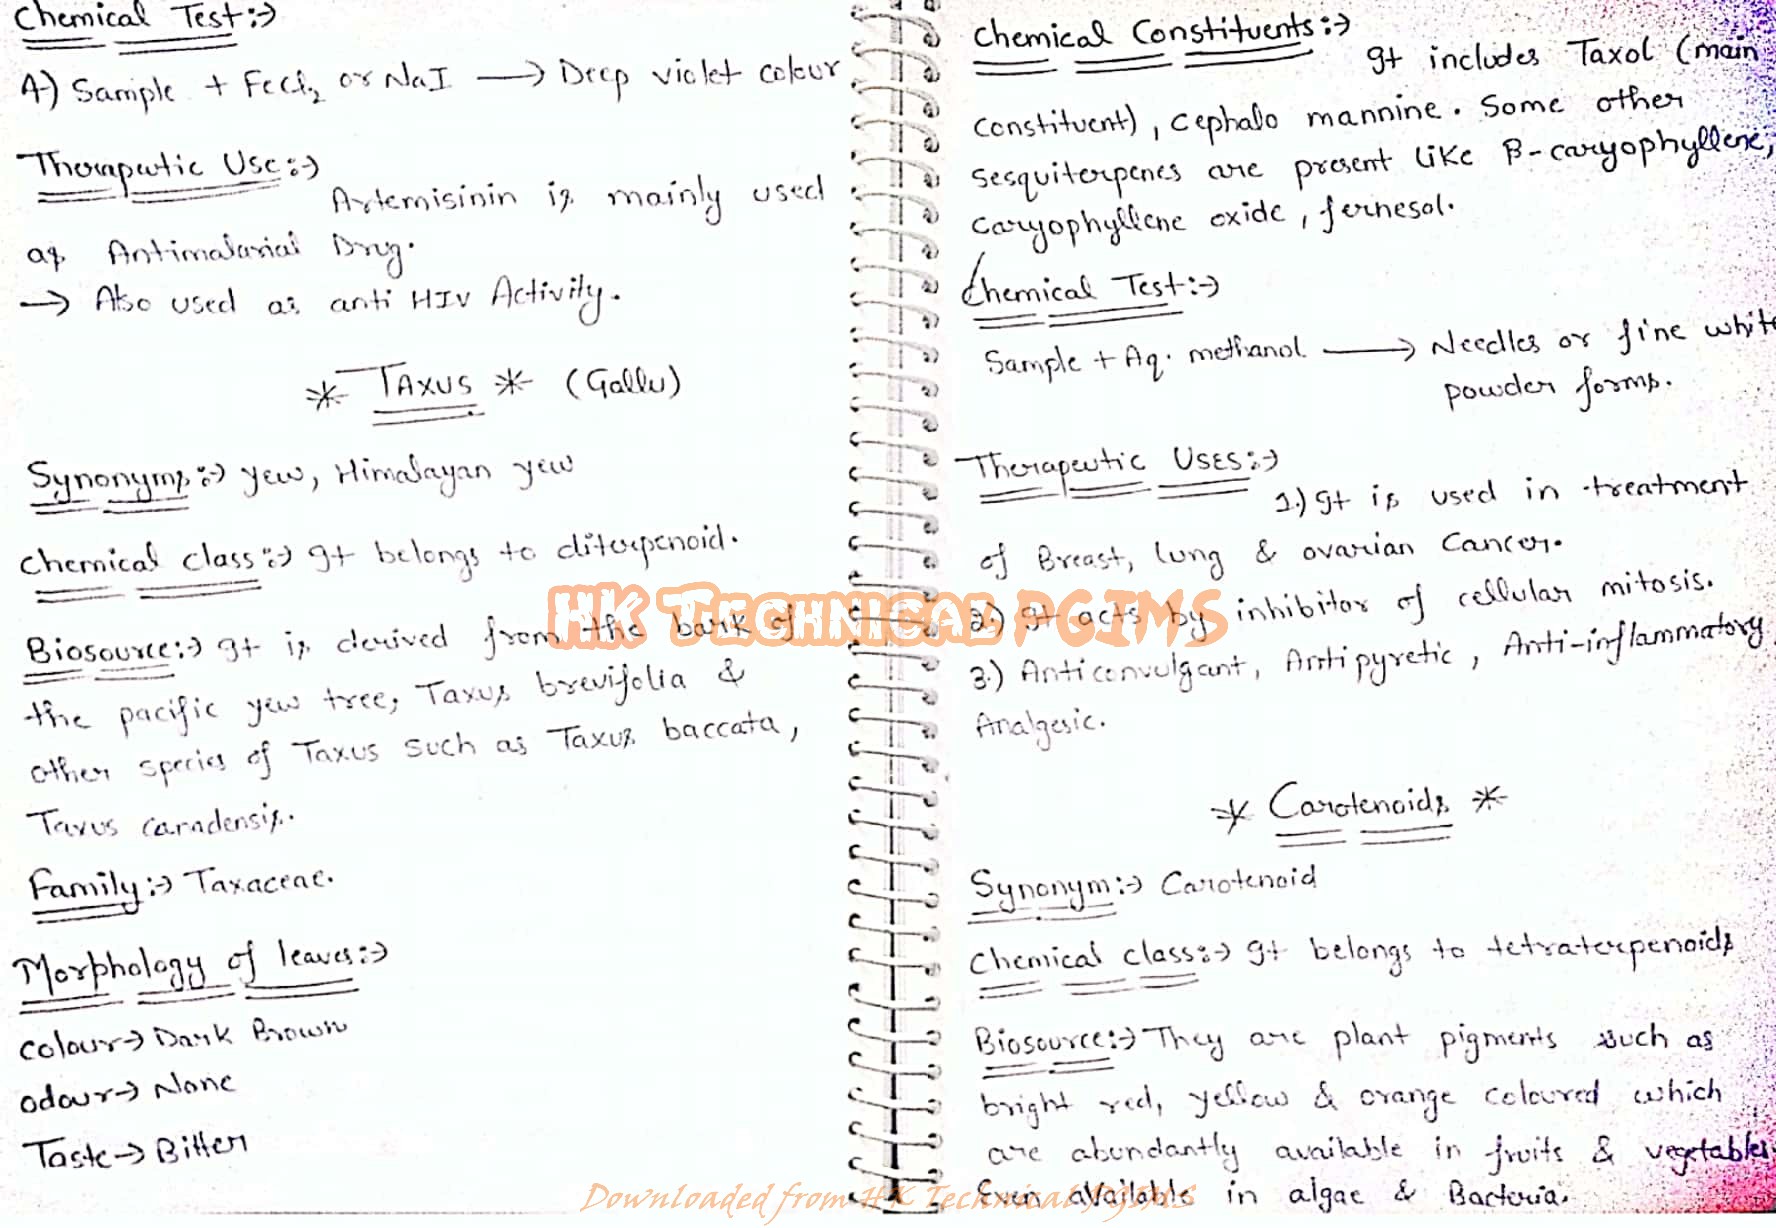 Chemical Test:->
A) Sample + FeCl2 or NaI -> Deep violet colour
Therapeutic Use:->
Artemisinin is mainly used
as Antimalarial Drug.
-> Also used as anti HIV Activity.
* TAXUS * (Gallu)
Synonyms:-> yew, Himalayan yew
Chemical class:-> It belongs to diterpenoid.
Biosource:-> It is derived from the bark of
the pacific yew tree, Taxus brevifolia &
other species of Taxus such as Taxus baccata,
Taxus canadensis.
Family:-> Taxaceae.
Morphology of leaves:->
colour-> Dark Brown
odour-> None
Taste-> Bitter
Chemical Constituents:->
It includes Taxol (main
constituent), cephalo mannine. Some other
sesquiterpenes are present like B-caryophyllene,
caryophyllene oxide, fernesol.
Chemical Test:->
Sample + Aq. methanol -> Needles or fine white
powder forms.
Therapeutic Uses:->
1.) It is used in treatment
of Breast, lung & ovarian Cancer.
2.) It acts by inhibitor of cellular mitosis.
3.) Anticonvulgant, Antipyretic, Anti-inflammatory
Analgesic.
* Carotenoids *
Synonym:-> Carotenoid
Chemical class:-> It belongs to tetraterpenoids
Biosource:-> They are plant pigments such as
bright red, yellow & orange coloured which
are abundantly available in fruits & vegetables
Even available in algae & Bacteria.
HK Technical PGIMS
Downloaded from HK Technical PGIMS